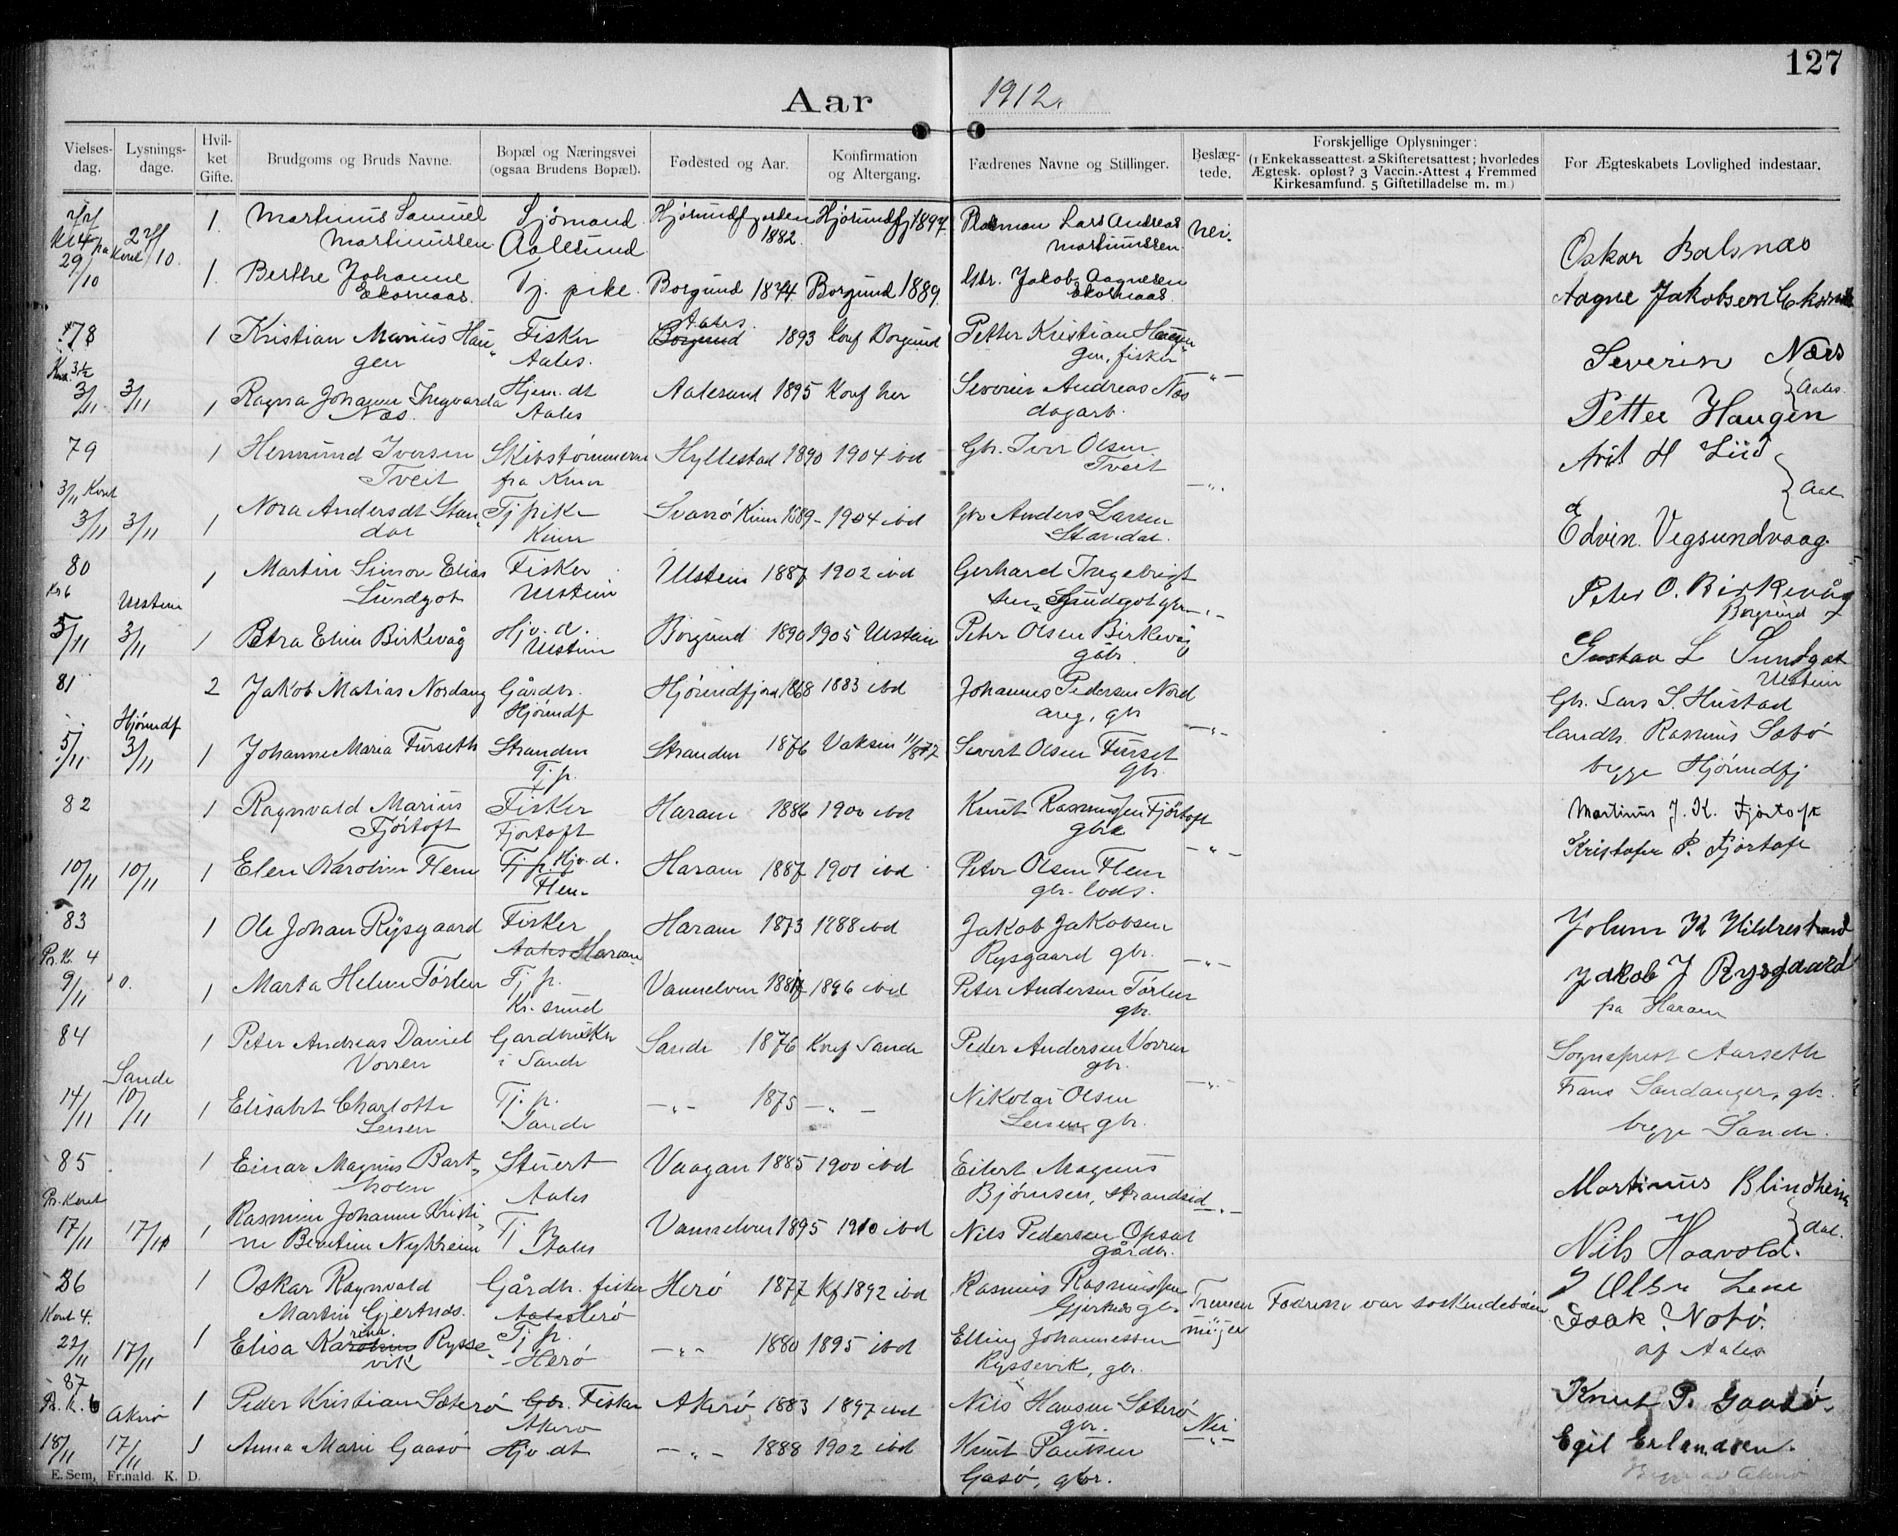 127
Aar 1912.
Vielses-dag. Lysnings-dage. Hvil-ket Gifte. Brudgoms og Bruds Navne. Bopæl og Næringsvei (ogsaa Brudens Bopæl). Fødested og Aar. Konfirmation og Altergang. Fædrenes Navne og Stillinger. Beslæg-tede. Forskjellige Oplysninger: (1 Enkekasseattest. 2 Skifteretsattest; hvorledes Ægtesk. opløst? 3 Vaccin.-Attest 4 Fremmed Kirkesamfund. 5 Giftetilladelse m. m.) For Ægteskabets Lovlighed indestaar.
1. Martinus Samuel Sjömand Hjörundfjorden Hjörundfj 1897 Lars Andreas nei.
Martinussen Aalesund 1882. Martinussen
Oskar Balsnæs
29/10 1. Berthe Johanne Tj. pike. Borgund 1874 Borgund 1889. Gbr. Jakob Aagnesen
Ekornaas. Ekornaas
Aagne Jakobsen Ekornaas
78 1 Kristian Marius Hau Fisker Aales. Borgund 1893 Konf Borgund Petter Kristian Haugen
gen Aales. gen, fisker
Severin Næs
3/11 3/11 1 Ragna Johanne Ingvarda Hjem. dt Aalesund 1895 Konf her Severin Andreas Næs
Næs. Aales dagarb. Aales.
Petter Haugen
79 1 Hermund Iversen Skibstømmerm Hyllestad 1890 1904 ibd Gbr. Iver Olsen
Tveit fra Kinn Tveit
3/11 3/11 1 Nora Andersdt Stan Tj pike Svanö Kinn 1889 - 1904 ibd Gbr Anders Larsen
dal Kinn Standal. Aal
Edvin. Vegsundvaag.
80 1 Martin Simon Elias Fisker Ulstein 1887 1902 ibd Gerhard Ingebrigt
Sundgot Ulstein sen Sundgot gbr.
Peter O. Birkevåg
Borgund
Ulstein
5/11 3/11 1 Petra Elin Birkevåg Hjv. d. Borgund 1890 1905 Ulstein Peter Olsen Birkevåg
Ulstein gbr.
Gustav L Sundgot
Ulstein
81 2 Jakob Matias Nordang Gårdbr. Hjörundfjord 1868 1883 ibd Johannes Pedersen Nord
Hjörundf ang, gbr
Gbr. Lars S. Hustad
Hjörundf
5/11 3/11 1 Johanne Maria Furseth Stranden Stranden 1876 Vaksin 11/8 77 Sivert Olsen Furset
Tj. p. gbr.
landh. Rasmus Sæbö
begge Hjörundfj
82 1 Ragnvald Marius Fisker Haram 1886 1900 ibd Knut Rasmussen Fjörtoft
Fjörtoft Fjørtoft gbr
Martinus J. K. Fjørtoft
Kristofer P. Fjørtoft
10/11 10/11 1 Elen Karoline Flem Tj. p. Hjv. d. Haram 1887 1901 ibd Peter Olsen Flem
Flem gbr. lods.
83 1 Ole Johan Rysgaard Fisker Haram 1873 1888 ibd Jakob Jakobsen
Aales Haram Rysgaard gbr.
Johan K Hildrestrand
9/11 1 Marta Helene Förlen Tj p. Vannelven 1896 ibd Peter Andersen Förlen
Kr. sund gbr.
Jakob J Rysgaard
på Haram
84 1 Peter Andreas Daniel Gardbruker Sande 1876 Konf Sande Peder Andersen Vorren
Vorren i Sande gbr.
Sogneprest Aarseth
Sande
14/11 10/11 1 Elisabet Charlotte Tj. p. —„— 1875 —„— Nikolai Olsen
Sande gbr.
Frans Sandanger, gbr.
begge Sande.
85 1 Einar Magnus Bart Stuert Vaagan 1885 1900 ibd Eilert Magnus
holm Aales Bjørnsen, strandsid
Martinus Blindheim
17/11 17/11 1 Rasmine Johanne Kristi Tj p Vannelven 1895 1910 ibd Nils Pedersen Opsal
ne Bentine Nykreim Aales gårdbr. Aal.
Nils Haavold.
86 1 Oskar Ragnvald Gårdbr. fisker Herö 1877 Kf 1892 ibd Rasmus Rasmussen
Martin Gjertnds. Aales Herö gbr. Tremen Fædrene var söskendebörn
J Olsen Lene
22/11 17/11 1 Elisa Karoline rina Rysse Tj. p. —„— 1880 1895 ibd Elling Johannessen
vik Herö Ryssevik, gbr.
Isak Notö.
af Aales
87
18/11 17/11 1 Peder Kristian Sæterö Gbr. Fisker Akerö 1883 1897 ibd Nils Hansen Sæterö
Akerö gbr. Nei
Knut P. Gaasö.
1 Anna Marie Gaasö Hjv dt —„— 1888 1902 ibd Knut Paulsen
Gasö, gbr.
Egil Erlandsen.
E. Sem, Fr.hald. K. D.